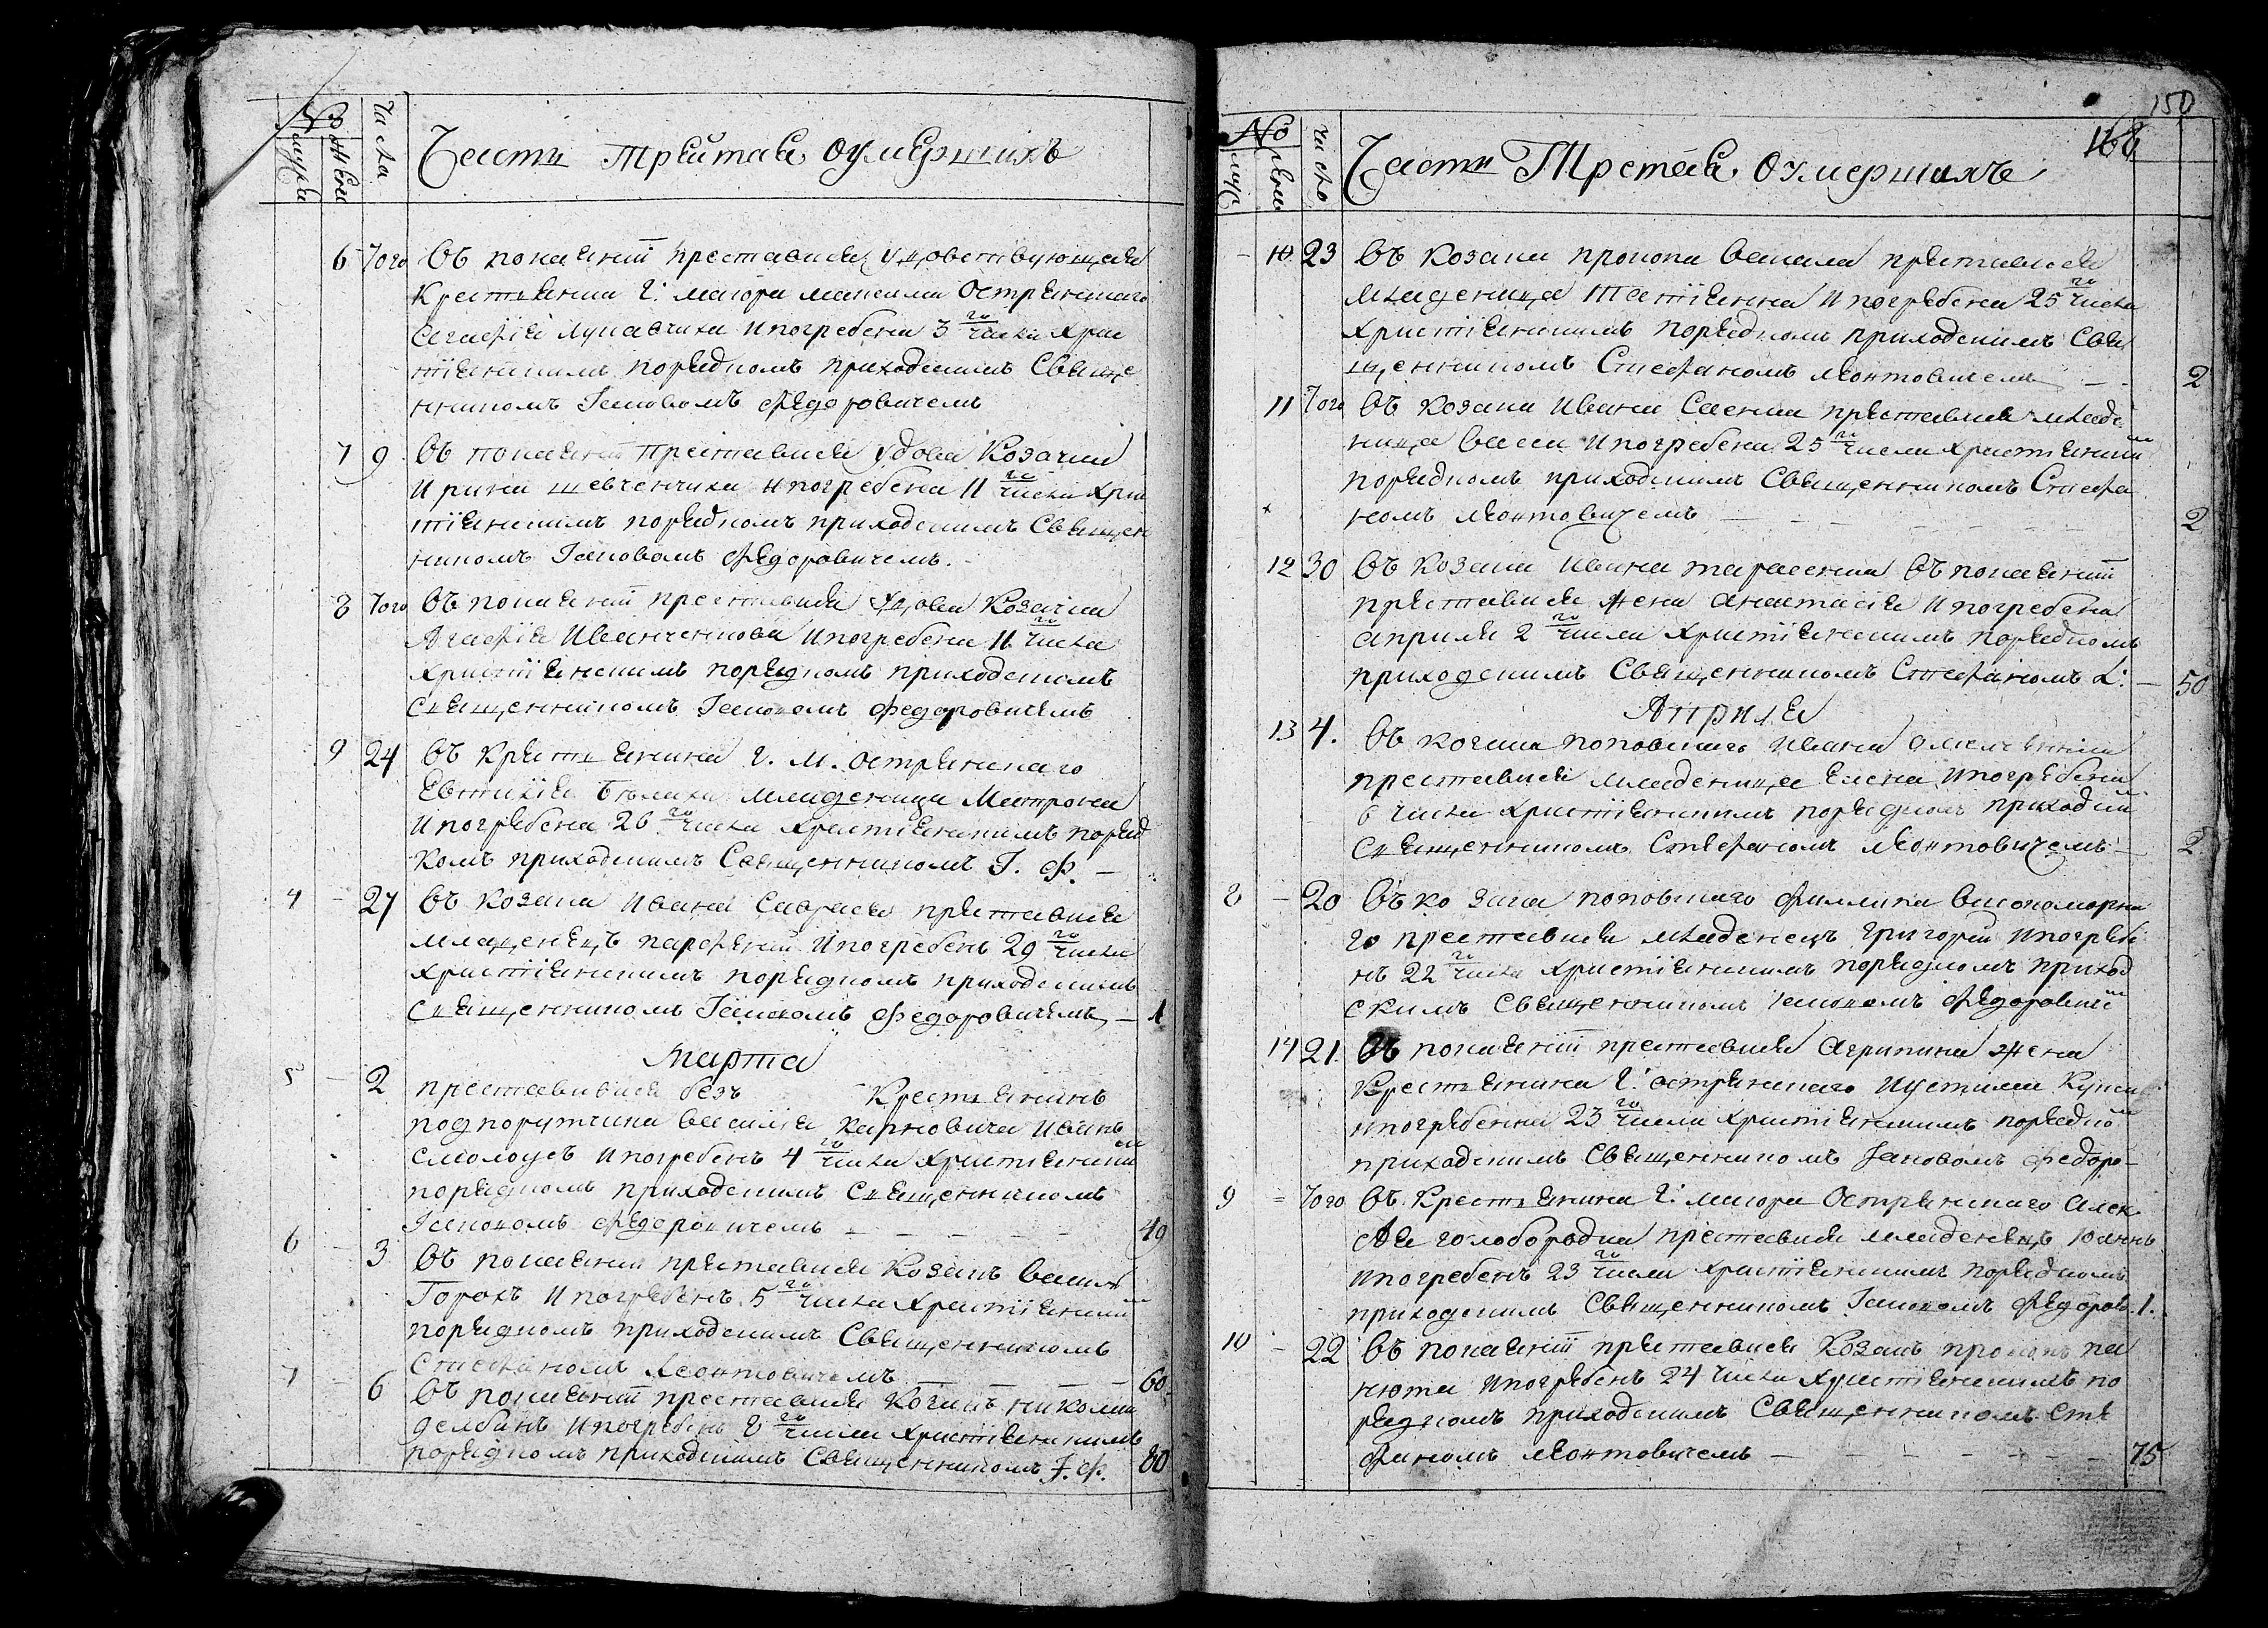 №
мужеска
женска
Числа
Часть Третая оумершихъ
6 Того Въ покаяніи преставися удовствующая
Крестьянка Г. маіора максима Острянскаго
Агафія и погребена 3 го числа Хрис
тіянскимъ порядкомъ приходскимъ Священ
никомъ Іаковомъ Федоровичемъ
7 9 Въ покаяніи преставися удова Козачка
Ирина шевченчиха и погребена 11 го числа Хрис
тіянскимъ порядкомъ приходскимъ Священ
никомъ Іаковомъ Федоровичемъ.
8 Того Въ покаяніи преставися удова Козачка
Агафія Иванченкова и погребена 11 го числа
Христіянскимъ порядкомъ приходскимъ
Священникомъ Іаковомъ Федоровичемъ
9 24 Въ Крестьянина Г. М. Острянскаго
Евтихія младеница Матрона
и погребена 26 го числа Христіянскимъ поряд
комъ приходскимъ Священникомъ І. Ф. —
4 – 27 Въ Козака Ивана преставися
младенецъ парфеній и погребенъ 29 го числа
Христіянскимъ порядкомъ приходскимъ
Священникомъ Іаковомъ Федоровичемъ — 1
Марта
5 – 2 преставився безъ Крестьянинъ
подпорутчика василія Карповича Иванъ
и погребенъ 4 го числа Христіянским
порядкомъ приходскимъ Священникомъ
Іаковомъ Федоровичемъ – – – – – 49
6 – 3 Въ покаянии преставися Козакъ василь
Горохъ и погребенъ 5 го числа Христіянским
порядкомъ приходскимъ Священникомъ
Стефаномъ Леонтовичемъ – – – – 60
7 – 6 Въ покаяніи преставися Козакъ николай
и погребенъ 8 го числа Христіянскимъ
порядкомъ приходскимъ Священникомъ І. Ф. 80
150
168
№
муж
женс
число
Часть Третая оумершихъ
– 10 23 Въ Козака прокопа преставися
младеница Татіянна и погребена 25 го числа
Христіянскимъ порядкомъ приходскимъ Свя
щенникомъ Стефаномъ Леонтовичемъ – – 2
11 Того Въ Козака Ивана Саенка преставися младе
ница васса и погребена 25 го числа Христіянским
порядкомъ приходскимъ Священникомъ Стефа
номъ Леонтовичемъ – – – – – 2
12 30 Въ Козака Ивана тарасенка въ покаяніи
преставися жена анастасія и погребена
априля 2 го числа Христіянскимъ порядкомъ
приходскимъ Священникомъ Стефаномъ Л. – 50
Априля
13 4. Въ Козака поповскаго Ивана омельяненка
преставися младеница Елена и погребена
6 числа Христіянскимъ порядкомъ приходским
Священникомъ Стефаномъ Леонтовичемъ – 2
8 – 20 Въ ко зака поповскаго Филлипа
го преставися младенецъ григорій и погребе
нъ 22 го числа Христіянскимъ порядкомъ приход
скимъ Священникомъ Іаковомъ Федоровичем
14 21. Въ покаяніи преставися Агрипина жена
Крестьянина Г. острянскаго
и погребенна 23 го числа Христіянскимъ порядком
приходскимъ Священникомъ Іаковомъ Федоро–
9 = Того Въ Крестьянина Г. маіора Острянскаго Алек
сѣя голобородка преставися младенецъ юліянъ
и погребенъ 23 го числа Христіянскимъ порядкомъ
приходскимъ Священникомъ Іаковомъ Федоров. 1.
10 – 22 Въ покаяніи преставися Козакъ прокопъ па
нюта и погребенъ 24 числа Христіянскимъ по
рядкомъ приходскимъ Священникомъ Сте
фаномъ Леонтовичемъ – – – – – 75